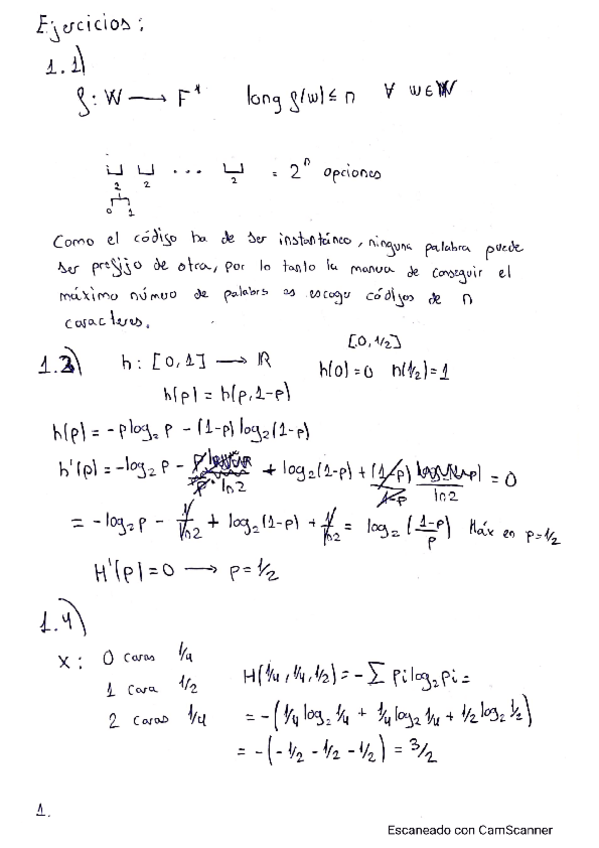 Ejercicios:
1.1)
f: W → F* long f(w) ≤ n ∀ w ∈ W
2 2 ... 2 = 2^n opciones
0 1
Como el código ha de ser instantáneo, ninguna palabra puede
ser prefijo de otra, por lo tanto la manera de conseguir el
máximo número de palabras es escoger códigos de n
caracteres.
[0, 1/2]
1.3) h: [0,1] → ℝ h(0)=0 h(1/2)=1
h(p) = h(p,1-p)
h(p) = -p log₂ p - (1-p) log₂(1-p)
h'(p) = -log₂ p - p/(p ln 2) + log₂(1-p) + (1-p)/(1-p) 1/ln2 = 0
= -log₂ p - 1/ln2 + log₂(1-p) + 1/ln2 = log₂((1-p)/p) Máx en p=1/2
H'(p)=0 → p=1/2
1.4)
x: 0 caras 1/4 H(1/4, 1/4, 1/2) = -∑ pi log₂ pi =
1 cara 1/2
2 caras 1/4 = -(1/4 log₂ 1/4 + 1/4 log₂ 1/4 + 1/2 log₂ 1/2)
= -(-1/2 - 1/2 - 1/2) = 3/2
1.
Escaneado con CamScanner